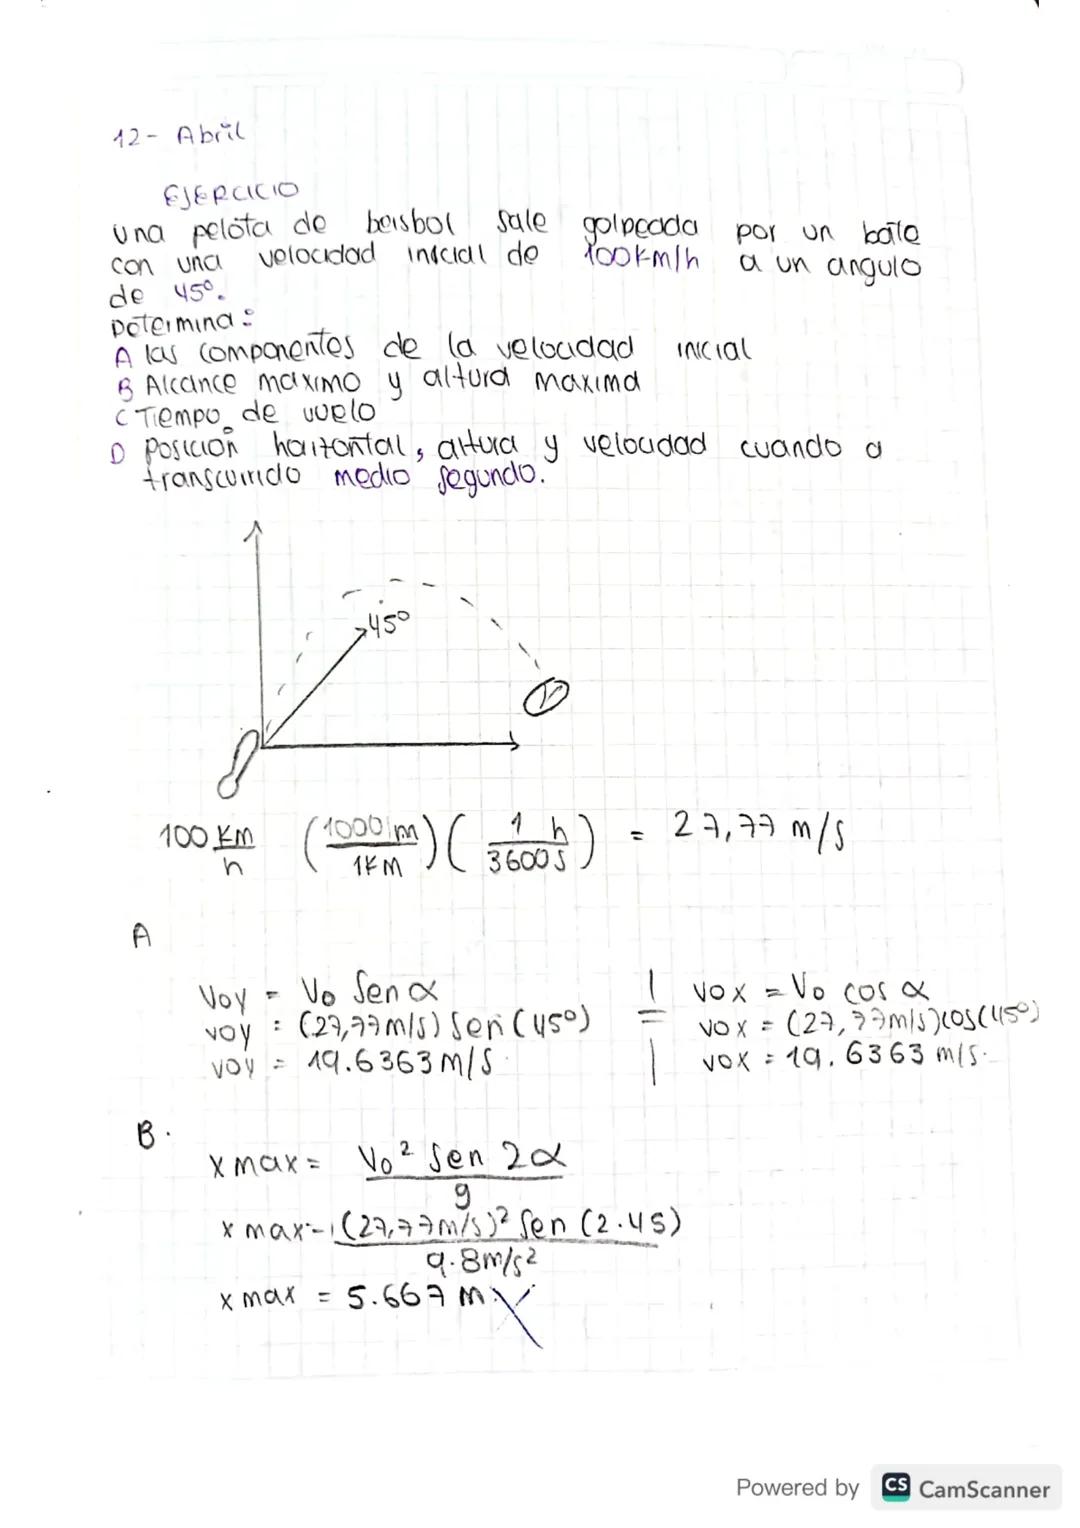 12- Abril
EJERCICIO
una pelota de beisbol sale golpeada por un bate
con una velocidad inicial de 100km/h a un angulo
de 45°.
Determina:
A las componentes de la velocidad inicial
B Alcance maximo y altura maxima
C Tiempo de vuelo
D posicion horizontal, altura y velocidad cuando a
transcurrido medio segundo.
45°
100 km/h (1000 m/1KM) (1 h/3600 s) = 27,77 m/s
A
Voy = Vo Sen α | Vox = Vo cos α
Voy = (27,77m/s) Sen (45°) = Vox = (27,77m/s)cos(45°)
Voy = 19.6363 m/s | Vox = 19.6363 m/s.
B.
x max = Vo² Sen 2α / g
x max = (27,77m/s)² Sen (2.45) / 9.8m/s²
x max = 5.667 m
Powered by CS CamScanner